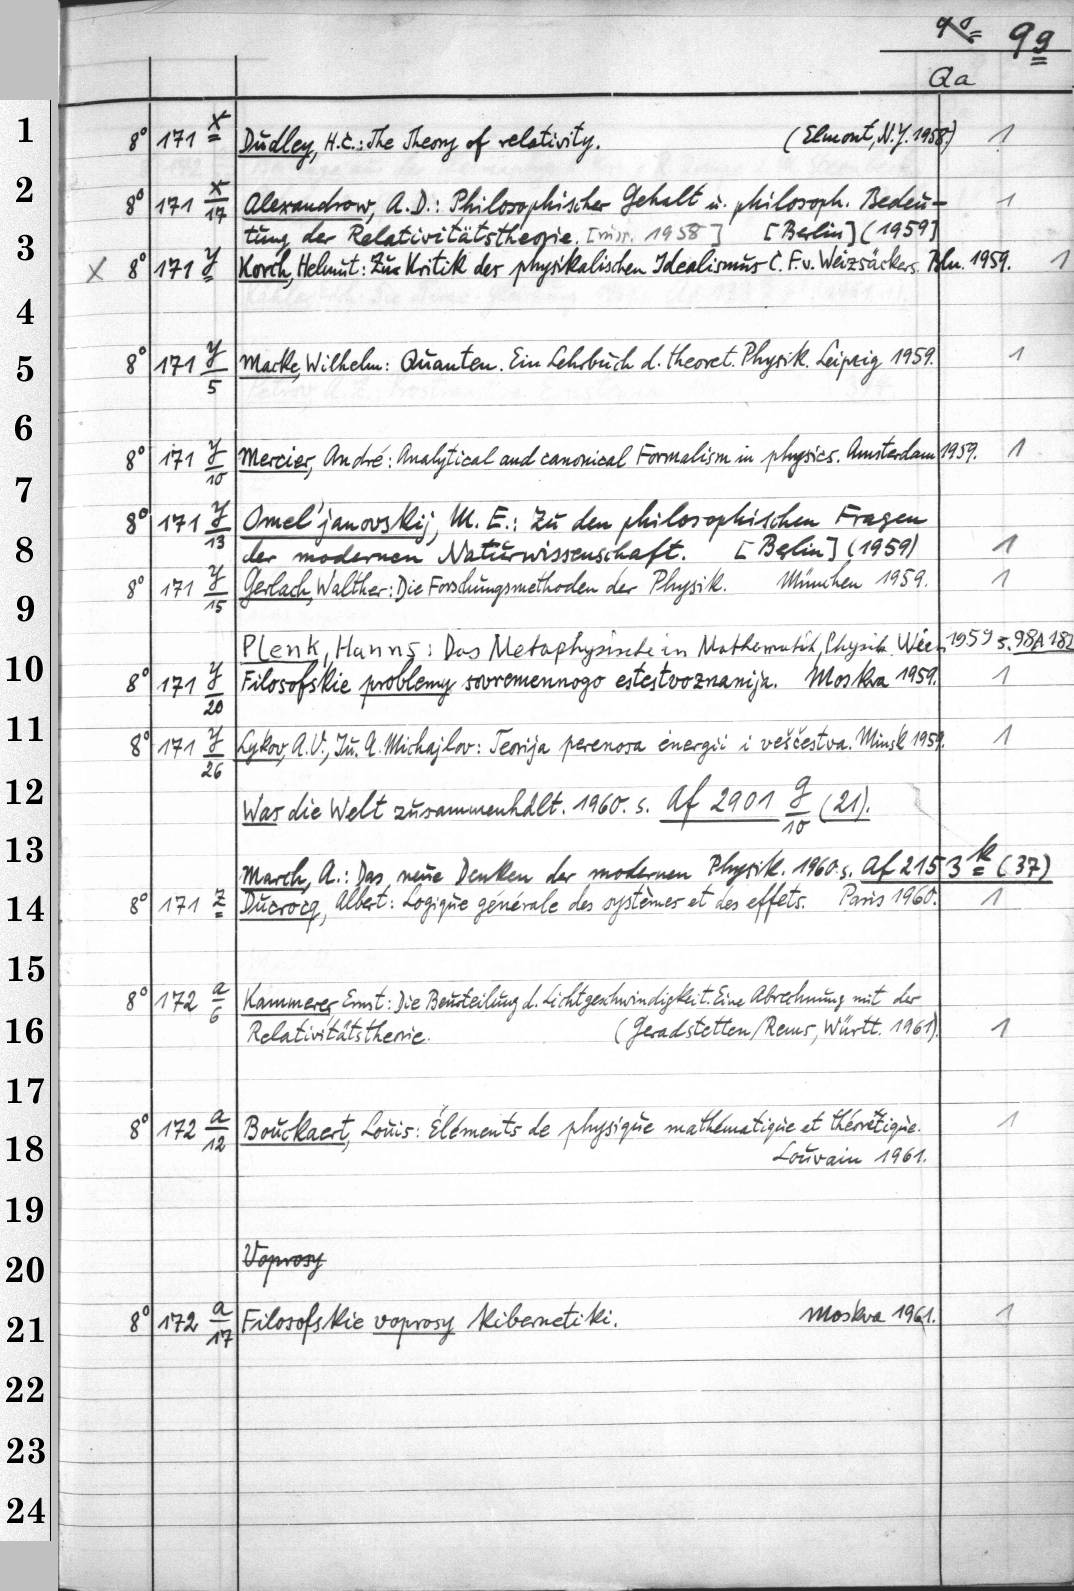 99
Qa
1 8° 171 x Dudley, H.C.: The Theory of relativity. (Elmont, N.Y. 1958) 1
2 8° 171 x/17 Alexandrow, A.D.: Philosophischer Gehalt u. philosoph. Bedeu- 1
tung der Relativitätstheorie. [russ. 1958] [Berlin] (1959)
3 X 8° 171 y Korch, Helmut: Zur Kritik des physikalischen Idealismus C.F.v. Weizsäckers. Bln. 1959. 1
4
5 8° 171 y/5 Macke, Wilhelm: Quanten. Ein Lehrbuch d. theoret. Physik. Leipzig 1959. 1
6
8° 171 y/10 Mercier, André: Analytical and canonical Formalism in physics. Amsterdam 1959. 1
7
8° 171 y/13 Omel'janovskij, M.E.: Zu den philosophischen Fragen
8 der modernen Naturwissenschaft. [Berlin] (1959) 1
8° 171 y/15 Gerlach, Walther: Die Forschungsmethoden der Physik. München 1959. 1
9
Plenk, Hanns: Das Metaphysische in Mathematik, Physik. Wien 1959 s. 98A 182
10 8° 171 y/20 Filosofskie problemy sovremennogo estestvoznanija. Moskva 1959. 1
11 8° 171 y/26 Lykov, A.V., Ju. A. Michajlov: Teorija perenosa énergii i veščestva. Minsk 1959. 1
12 Was die Welt zusammenhält. 1960. s. Af 2901 g/10 (21).
13
March, A.: Das neue Denken der modernen Physik. 1960. s. Af 2153 k (37)
14 8° 171 z Ducrocq, Albert: Logique générale des systèmes et des effets. Paris 1960. 1
15
8° 172 a/6 Kammerer, Ernst: Die Beurteilung d. Lichtgeschwindigkeit. Eine Abrechnung mit der
16 Relativitätstheorie. (Geradstetten/Rems, Württ. 1961). 1
17
8° 172 a/12 Bouckaert, Louis: Éléments de physique mathématique et théorétique. 1
18 Louvain 1961.
19
20 Voprosy
21 8° 172 a/17 Filosofskie voprosy kibernetiki. Moskva 1961. 1
22
23
24